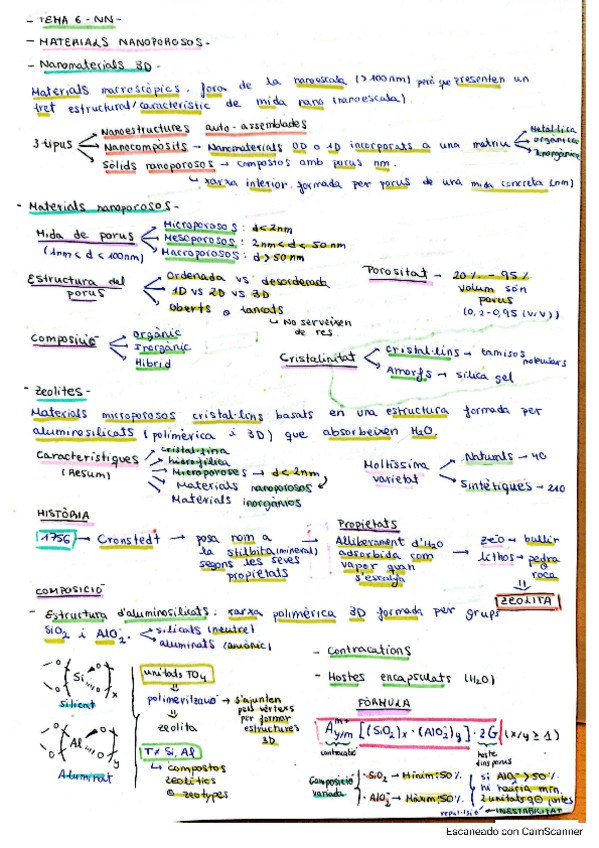 - TEMA 6 - NN -
- MATERIALS NANOPOROSOS -
- Nanomaterials 3D -
Materials macroscòpics, fora de la nanoescala (>100nm) però que presenten un
tret estructural/característic de mida nano (nanoescala).
3 tipus
Nanoestructures auto-assemblades
Nanocompòsits → Nanomaterials 0D o 1D incorporats a una matriu
Metàl·lica
orgànica
Inorgànica
Sòlids nanoporosos → compostos amb porus nm.
↳ xarxa interior formada per porus de una mida concreta (nm)
- Materials nanoporosos -
Mida de porus
(1nm < d < 100nm)
Microporosos: d<2nm
Mesoporosos: 2nm < d < 50 nm
Macroporosos: d > 50nm
Estructura del
porus
Ordenada vs desordenada
1D vs 2D vs 3D
Oberts o tancats
↳ No serveixen
de res
Porositat - 20% - 95%
volum són
porus
(0,2-0,95 (v/v))
Composició
Orgànic
Inorgànic
Híbrid
Cristalinitat
Cristal·lins → tamisos
moleculars
Amorfs → sílica gel
- Zeolites -
Materials microporosos cristal·lins basats en una estructura formada per
aluminosilicats (polimèrica i 3D) que absorbeixen H₂O.
Característiques
(Resum)
cristal·lina
hidrofílica
Microporoses → d<2nm
Materials nanoporosos
Materials inorgànics
Moltíssima
varietat
Naturals → 40
Sintètiques → 210
HISTÒRIA
1756 → Cronstedt → posa nom a
la stilbita (mineral)
segons les seves
propietats
Propietats
Alliberament d'H₂O
adsorbida com
vapor quan
s'escalfa
zeo → bullir
lithos → pedra
o
roca
ZEOLITA
COMPOSICIÓ
- Estructura d'aluminosilicats: xarxa polimèrica 3D formada per grups
SiO₂ i AlO₂⁻
silicats (neutre)
aluminats (aniònic)
Si
x
silicat
Al
y
Aluminat
unitats TO₄
polimerització → s'ajunten
pels vèrtexs
per formar
estructures
3D
zeolita
T ≠ Si, Al
↳ compostos
zeolítics
o zeotypes
- Contracations
- Hostes encapsulats (H₂O)
FÓRMULA
A^m+ y/m [(SiO₂)x · (AlO₂⁻)y] · zG (x/y ≥ 1)
contracatió
hoste
dins porus
Composició
variada
· SiO₂ → Mínim: 50%
· AlO₂⁻ → Màxim: 50%
si AlO₂⁻ > 50%
hi hauria mín.
2 unitats juntes
repulsió
INESTABILITAT
Escaneado con CamScanner